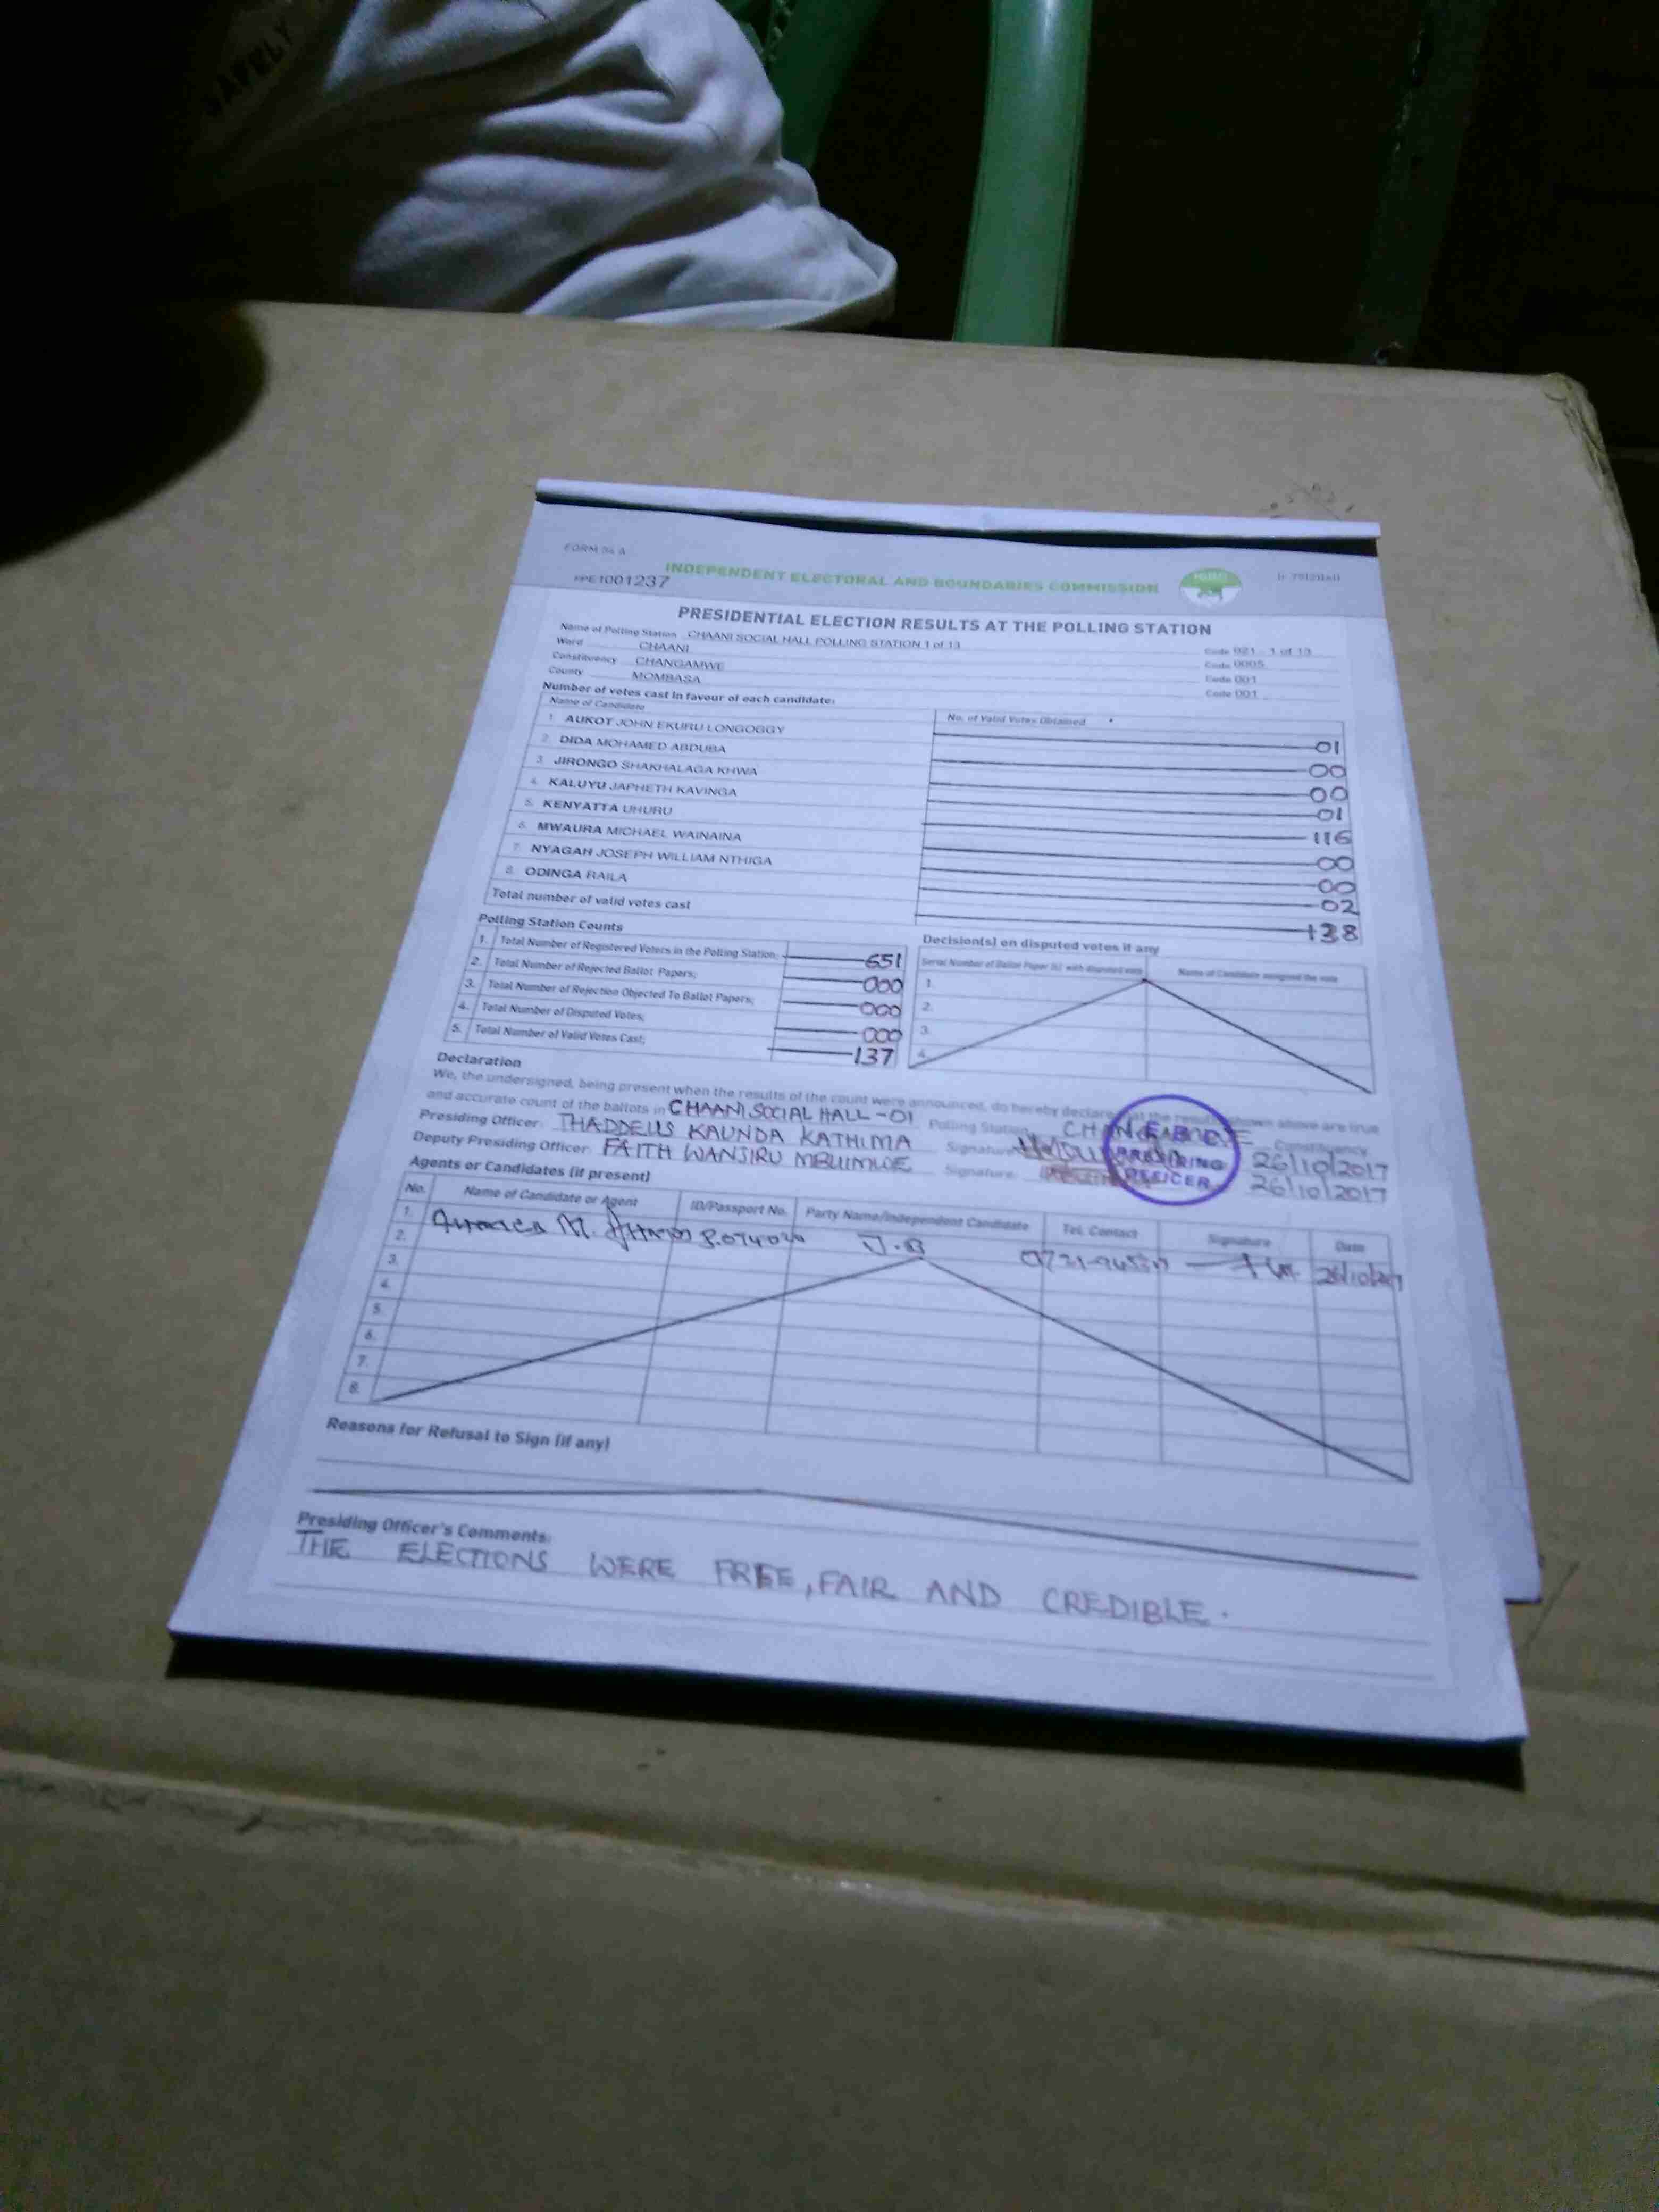 SAFELY
FORM 34 A
INDEPENDENT ELECTORAL AND BOUNDARIES COMMISSION
PPE1001237
PRESIDENTIAL ELECTION RESULTS AT THE POLLING STATION
Name of Polling Station CHAANI SOCIAL HALL POLLING STATION 1 of 13 Code 021 - 1 of 13
Ward CHAANI Code 0005
Constituency CHANGAMWE Code 001
County MOMBASA Code 001
Number of votes cast in favour of each candidate:
Name of Candidate No. of Valid Votes Obtained
1. AUKOT JOHN EKURU LONGOGGY 01
2. DIDA MOHAMED ABDUBA 00
3. JIRONGO SHAKHALAGA KHWA 00
4. KALUYU JAPHETH KAVINGA 01
5. KENYATTA UHURU 116
6. MWAURA MICHAEL WAINAINA 00
7. NYAGAH JOSEPH WILLIAM NTHIGA 00
8. ODINGA RAILA 02
Total number of valid votes cast 138
Polling Station Counts
1. Total Number of Registered Voters in the Polling Station; 651
2. Total Number of Rejected Ballot Papers; 000
3. Total Number of Rejection Objected To Ballot Papers; 000
4. Total Number of Disputed Votes; 000
5. Total Number of Valid Votes Cast; 137
Decision(s) on disputed votes if any
Serial Number of Ballot Paper (s) with disputed vote Name of Candidate assigned the vote
1.
2.
3.
4.
Declaration
We, the undersigned, being present when the results of the count were announced, do hereby declare that the results shown above are true
and accurate count of the ballots in CHAANI SOCIAL HALL -01 Polling Station CHANGAMWE Constituency
Presiding Officer: THADDEUS KAUNDA KATHIMA Signature: 26/10/2017
Deputy Presiding Officer: FAITH WANJIRU MBUIMWE Signature: 26/10/2017
I.E.B.C
PRESIDING
OFFICER
Agents or Candidates (if present)
No. Name of Candidate or Agent ID/Passport No. Party Name/Independent Candidate Tel. Contact Signature Date
1. M. 26/10/2017
2.
3.
4.
5.
6.
7.
8.
Reasons for Refusal to Sign (if any)
Presiding Officer's Comments:
THE ELECTIONS WERE FREE, FAIR AND CREDIBLE.